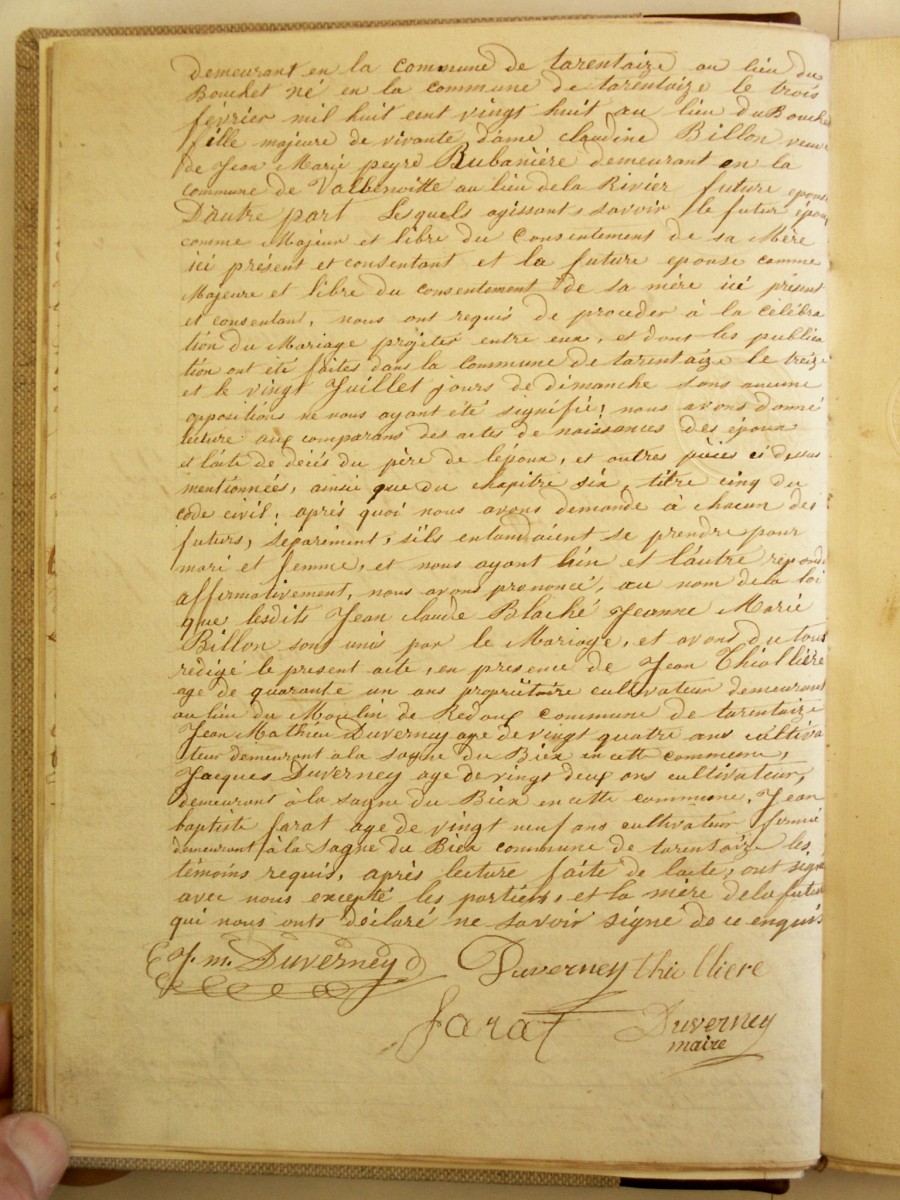 demeurant en la commune de tarentaize au lieu du
Bouchet né en la commune de tarentaize le trois
février mil huit cent vingt huit au lieu du Bouchet
fille majeure de vivante dame claudine Billon veuve
de Jean Marie peyrd Rubanière demeurant en la
commune de Valbenoitte au lieu de la Rivier future epouse
D'autre part Lesquels agissant, savoir le futur époux
comme Majeur et libre du Consentement de sa Mère
ici présent et consentant et la future epouse comme
Majeure et libre du consentement de sa mère ici présent
et consentant, nous ont requis de proceder à la célébra
tion du Mariage projeter entre eux, et dont les publica
tion ont été faites dans la commune de tarentaize le treize
et le vingt Juillet jours de dimanche sans aucune
oppositions ne nous ayant été signifié; nous avons donné
lecture aux comparans des actes de naissances des époux
et l'acte de décés du père de l'époux, et autres pièces ci dessus
mentionnées, ainsi que du chapitre six, titre cinq du
code civil, après quoi nous avons demande à chacun des
futurs, séparément, s'ils entandaient se prendre pour
mari et femme, et nous ayant l'un et l'autre répondu
affirmativement, nous avons prononcé, au nom de la loi
que lesdits Jean claude Blaché Jeanne Marie
Billon sont unis par le Mariage, et avons du tout
redigé le present acte, en presence de Jean Thiollière
age de quarante un ans propriétaire cultivateur demeurant
au lieu du Moulin de Redoux commune de tarentaize
Jean Mathieu Duverney age de vingt quatre ans cultiva
teur demeurant à la sagne du Biex en cette commune,
Jacques Duverney age de vingt deux ans cultivateur,
demeurant à la sagne du Biex en cette commune, Jean
baptiste farat age de vingt neuf ans cultivateur fermié
demeurant à la sagne du Biex commune de tarentaize les
témoins requis, après lecture faite de l'acte, ont signé
avec nous excepté les partiers, et la mère de la future
qui nous onts déclaré ne savoir signé de ce enquis
J. m. Duverney Duverney thiolliere
farat Duverney
maire